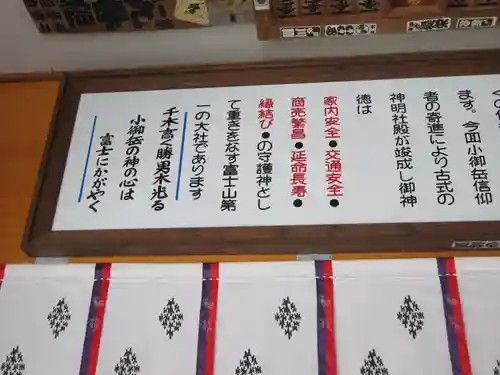 ます。今皿小御岳信仰
者の寄進により古式の
神明社殿が竣成し御神
徳は
家内安全●交通安全●
商売繁昌●延命長寿●
縁結び●の守護神とし
て重きをなす富士山第
一の大社であります
千木高く勝男木光る
小御岳の神の心は
富士にかがやく